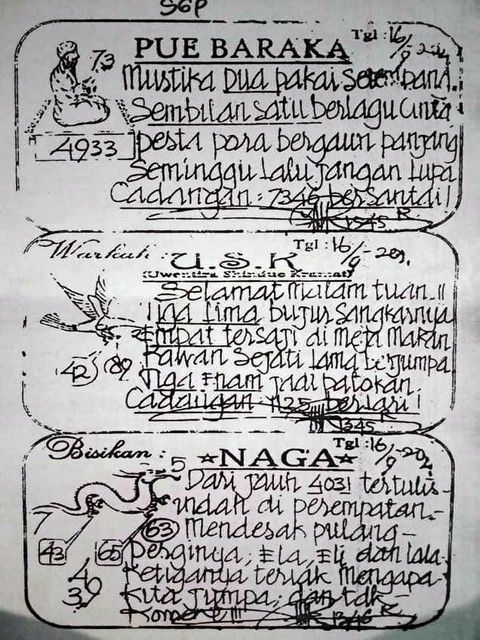 SGP
PUE BARAKA
Tgl : 16/9-204
73
Mustika Dua pakai Selendang
Sembilan satu berlagu Cinta
4933
pesta pora bergaun panjang
Seminggu Lalu jangan Lupa
Cadangan : 7346 bersantai !
1545 R
Warkah :
U.S.K
Tgl : 16/9-204
(Uwentira Shindue Kramat)
Selamat malam tuan..!!
Tiga Lima bujur Sangkarnya
Empat tersaji di meja makan
42 89
Kawan Sejati Lama berjumpa
Tiga Enam jadi patokan.
Cadangan 1125 berlari !
1345
Bisikan :
★NAGA★
Tgl : 16/9-204
5
Dari jauh 4031 tertulis-
indah di perempatan.-
7
63
Mendesak pulang-
43 65
Perginya, Ela, Eli dan Lala-
40
Ketiganya teriak mengapa-
39
Kita jumpa, dan tak-
R